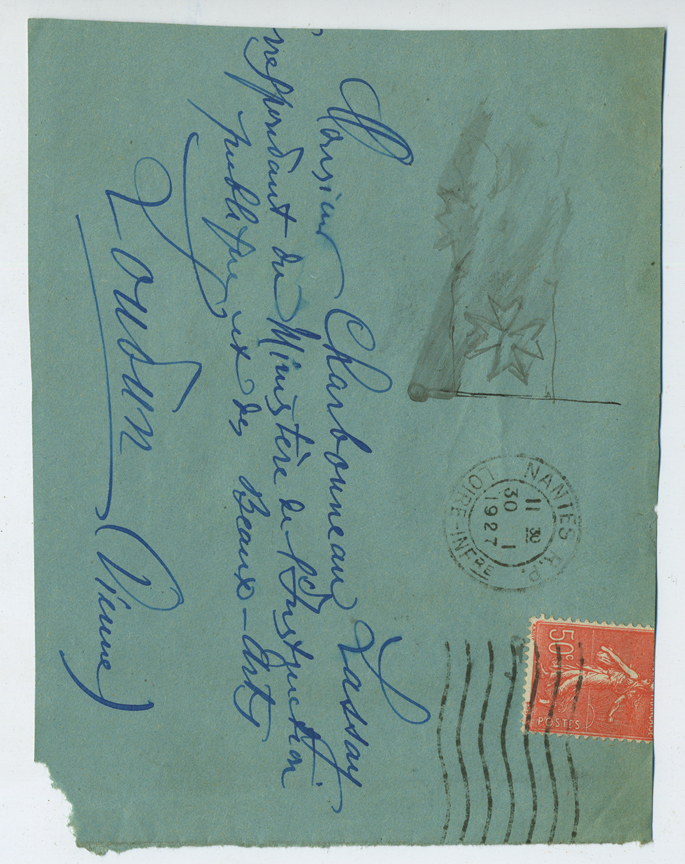 Monsieur Charbonneau Lassay
rrespondant du Ministère de l'Instruction
publique et des Beaux-Arts
Loudun (Vienne)
NANTES R.P.
11 30
30 1
1927
LOIRE-INFRE
50c
POSTES